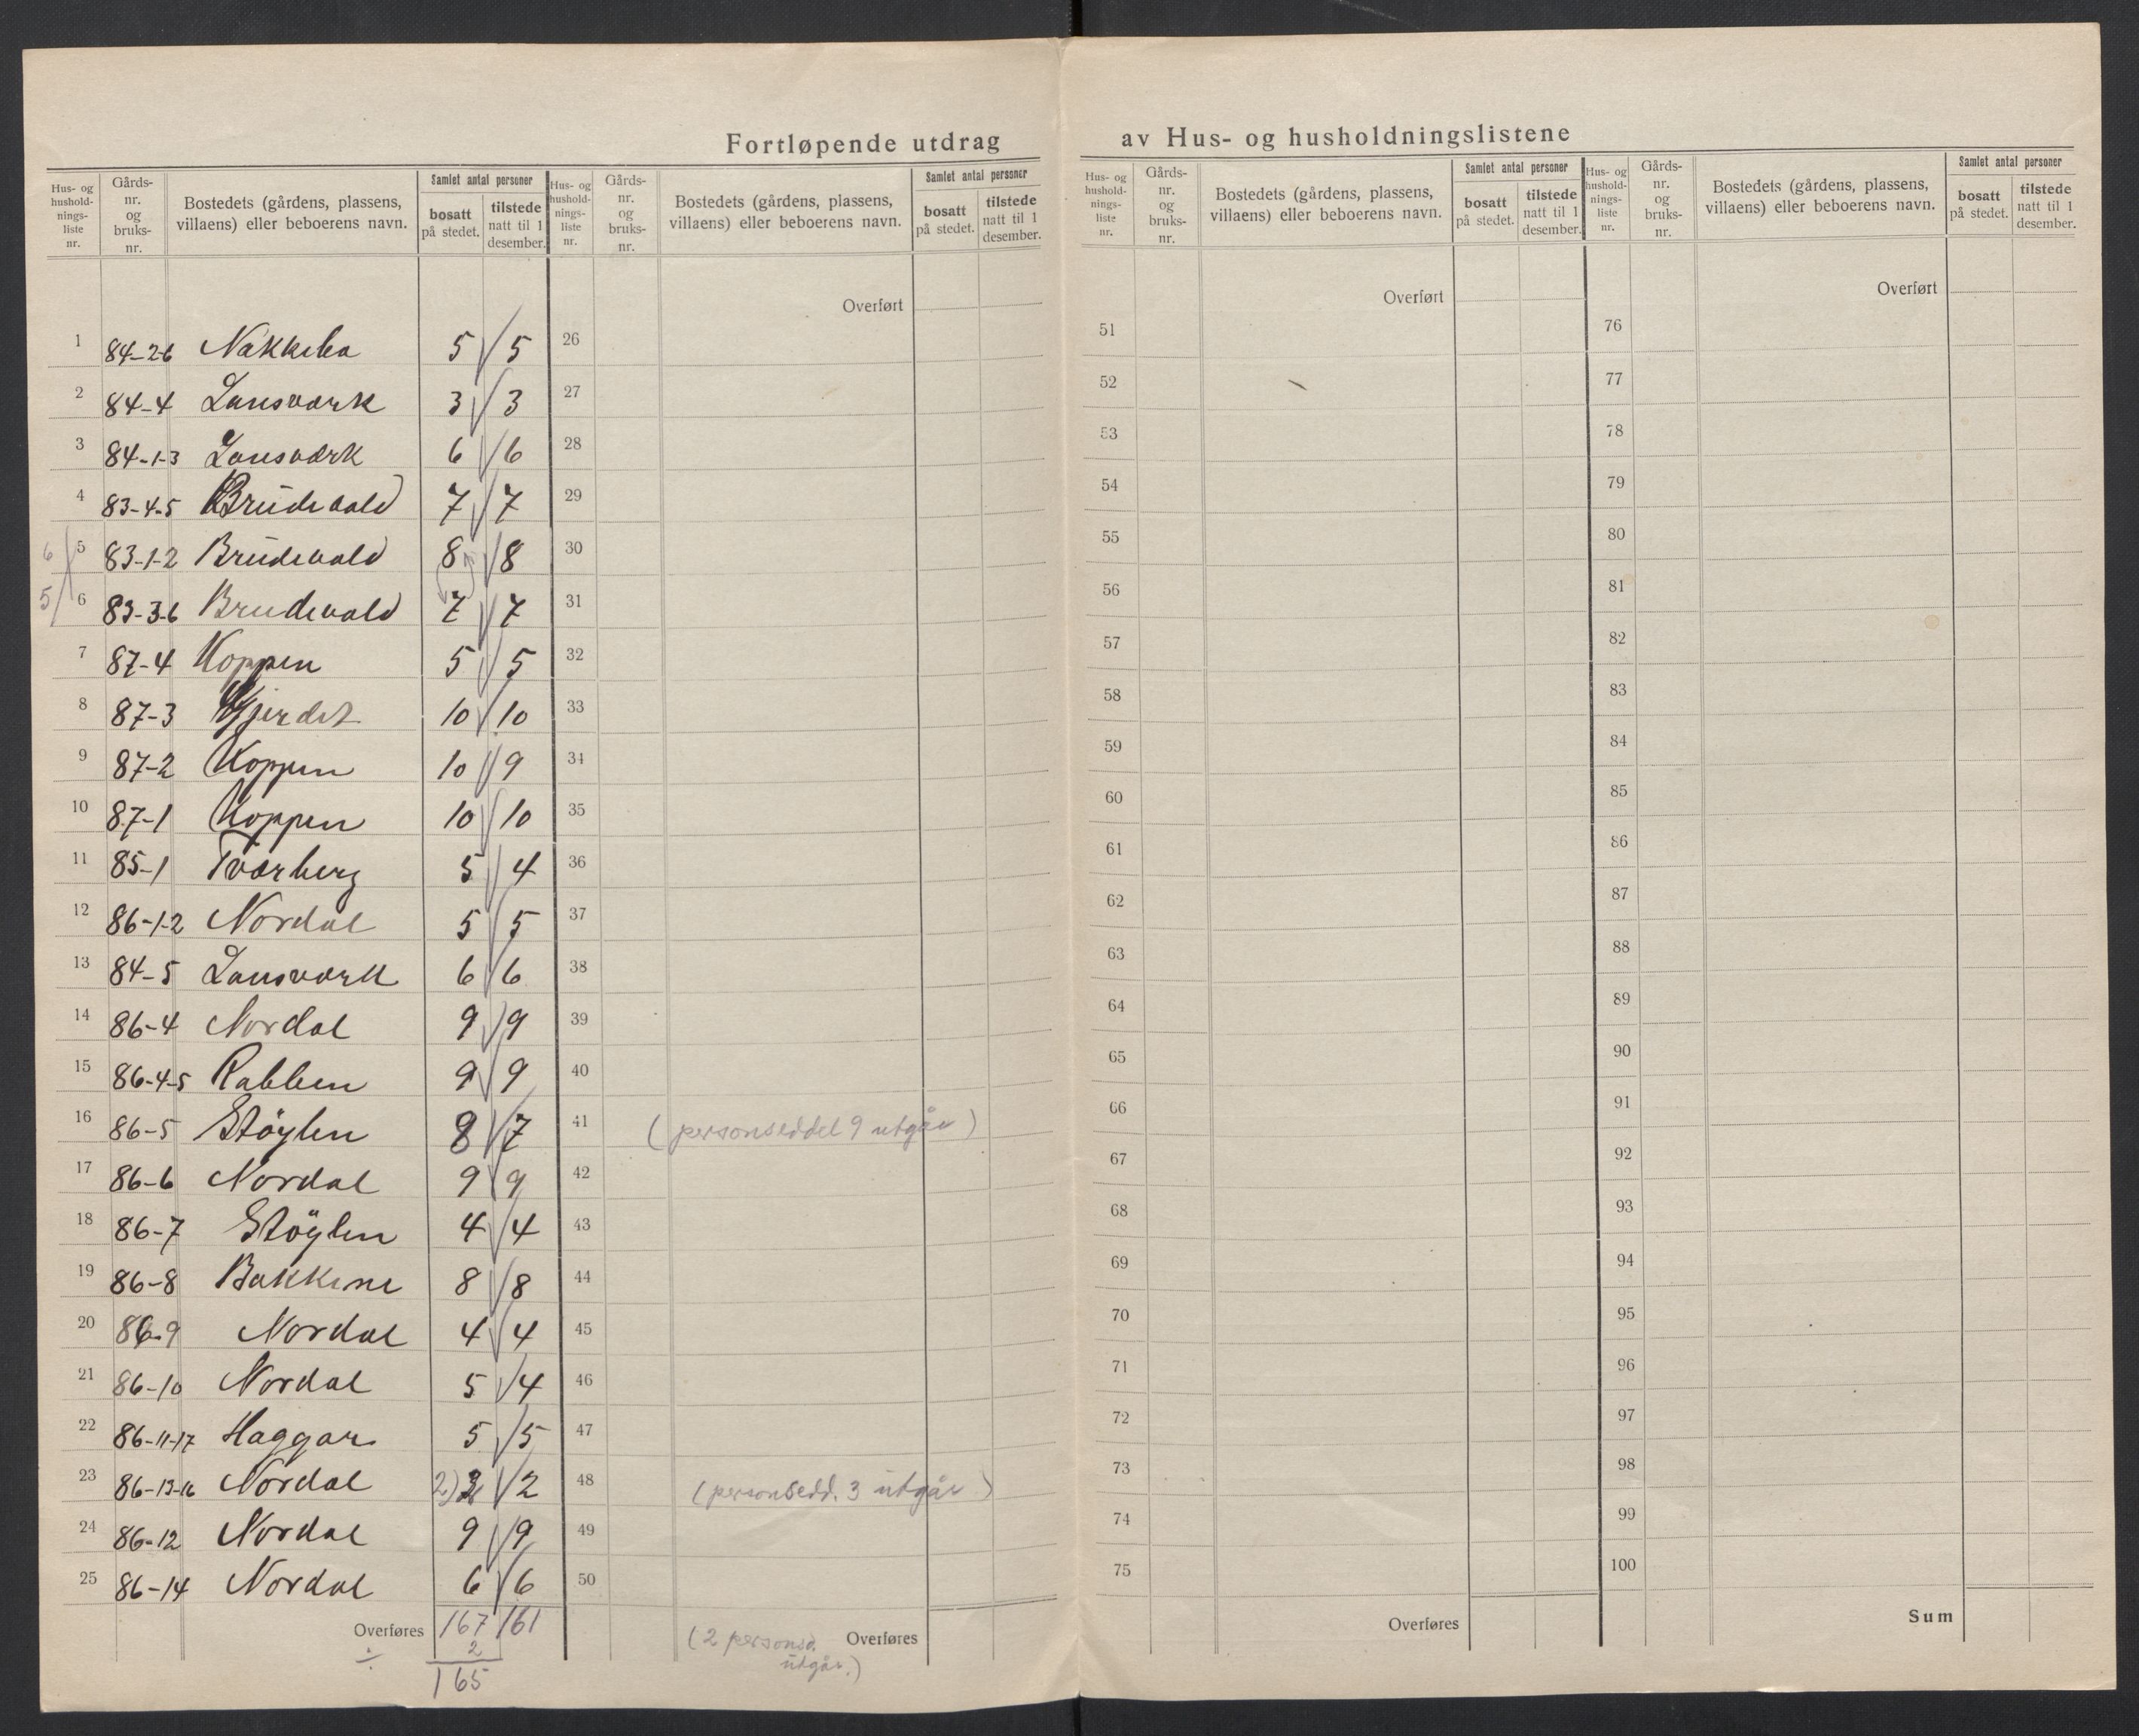 Fortløpende utdrag av Hus- og husholdningslistene
Hus- og hushold- nings- liste nr. | Gårds- nr. og bruks- nr. | Bostedets (gårdens, plassens, villaens) eller beboerens navn. | Samlet antal personer | bosatt på stedet. | tilstede natt til 1 desember.
Hus- og hushold- nings- liste nr. | Gårds- nr. og bruks- nr. | Bostedets (gårdens, plassens, villaens) eller beboerens navn. | Samlet antal personer | bosatt på stedet. | tilstede natt til 1 desember.
Hus- og hushold- nings- liste nr. | Gårds- nr. og bruks- nr. | Bostedets (gårdens, plassens, villaens) eller beboerens navn. | Samlet antal personer | bosatt på stedet. | tilstede natt til 1 desember.
Hus- og hushold- nings- liste nr. | Gårds- nr. og bruks- nr. | Bostedets (gårdens, plassens, villaens) eller beboerens navn. | Samlet antal personer | bosatt på stedet. | tilstede natt til 1 desember.
Overført Overført Overført
1 84-2-6 Nakkeba 5 5 26 51 76
2 84-4 Lausværk 3 3 27 52 77
3 84-1-3 Lausværk 6 6 28 53 78
4 83-4-5 Brüdevold 7 7 29 54 79
6 5 83-1-2 Brüdevold 8 8 30 55 80
5 6 83-3-6 Brudevold 7 7 31 56 81
7 87-4 Koppen 5 5 32 57 82
8 87-3 Gjerdet 10 10 33 58 83
9 87-2 Koppen 10 9 34 59 84
10 87-1 Koppen 10 10 35 60 85
11 85-1 Tværberg 5 4 36 61 86
12 86-1-2 Nordal 5 5 37 62 87
13 84-5 Lausværk 6 6 38 63 88
14 86-4 Nordal 9 9 39 64 89
15 86-4-5 Rabben 9 9 40 65 90
16 86-5 Støylen 8 7 41 (personseddel 9 utgår) 66 91
17 86-6 Nordal 9 9 42 67 92
18 86-7 Støylen 4 4 43 68 93
19 86-8 Bakkene 8 8 44 69 94
20 86-9 Nordal 4 4 45 70 95
21 86-10 Nordal 5 4 46 71 96
22 86-11-17 Haggar 5 5 47 72 97
23 86-13-16 Nordal 2) 2 48 (personsedd. 3 utgår) 73 98
24 86-12 Nordal 9 9 49 74 99
25 86-14 Nordal 6 6 50 75 100
Overføres 167 161 (2 personsd. utgår.) Overføres Overføres Sum
÷ 2
165